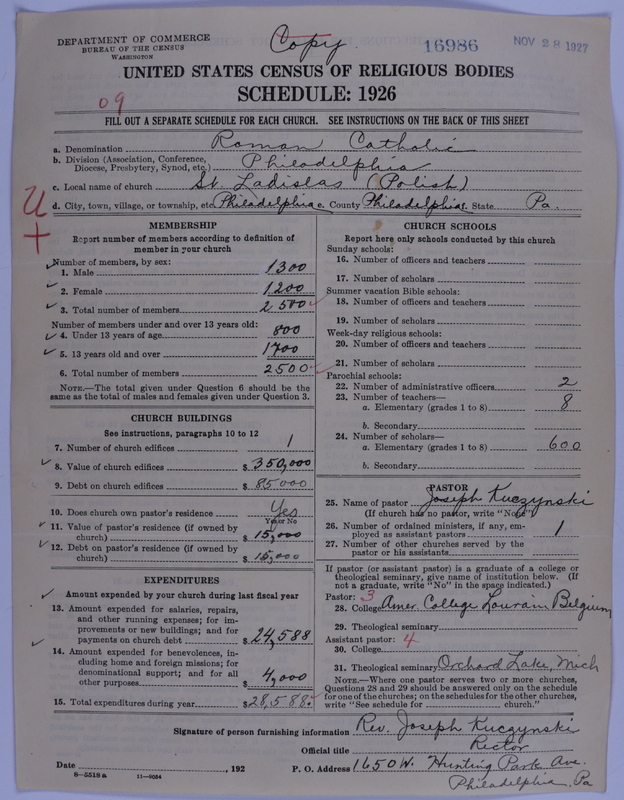 DEPARTMENT OF COMMERCE
BUREAU OF THE CENSUS
WASHINGTON
Copy
16986
NOV 28 1927
UNITED STATES CENSUS OF RELIGIOUS BODIES
SCHEDULE: 1926
09
FILL OUT A SEPARATE SCHEDULE FOR EACH CHURCH. SEE INSTRUCTIONS ON THE BACK OF THIS SHEET
a. Denomination Roman Catholic
b. Division (Association, Conference, Diocese, Presbytery, Synod, etc.) Philadelphia
c. Local name of church St. Ladislas (Polish)
d. City, town, village, or township, etc. Philadelphia County Philadelphia State Pa.
U
+
MEMBERSHIP
Report number of members according to definition of
member in your church
Number of members, by sex:
1. Male 1300
2. Female 1200
3. Total number of members 2500
Number of members under and over 13 years old:
4. Under 13 years of age 800
5. 13 years old and over 1700
6. Total number of members 2500
NOTE.—The total given under Question 6 should be the
same as the total of males and females given under Question 3.
CHURCH BUILDINGS
See instructions, paragraphs 10 to 12
7. Number of church edifices 1
8. Value of church edifices $ 350,000
9. Debt on church edifices $ 85000
10. Does church own pastor's residence Yes
Yes or No
11. Value of pastor's residence (if owned by
church) $ 15,000
12. Debt on pastor's residence (if owned by
church) $ 15,000
EXPENDITURES
Amount expended by your church during last fiscal year
13. Amount expended for salaries, repairs,
and other running expenses; for im-
provements or new buildings; and for
payments on church debt $ 24,588
14. Amount expended for benevolences, in-
cluding home and foreign missions; for
denominational support; and for all
other purposes $ 4,000
15. Total expenditures during year $ 28,588.
CHURCH SCHOOLS
Report here only schools conducted by this church
Sunday schools:
16. Number of officers and teachers
17. Number of scholars
Summer vacation Bible schools:
18. Number of officers and teachers
19. Number of scholars
Week-day religious schools:
20. Number of officers and teachers
21. Number of scholars
Parochial schools:
22. Number of administrative officers 2
23. Number of teachers—
a. Elementary (grades 1 to 8) 8
b. Secondary
24. Number of scholars—
a. Elementary (grades 1 to 8) 600
b. Secondary
PASTOR
25. Name of pastor Joseph Kuczynski
(If church has no pastor, write "None")
26. Number of ordained ministers, if any, em-
ployed as assistant pastors 1
27. Number of other churches served by the
pastor or his assistants
If pastor (or assistant pastor) is a graduate of a college or
theological seminary, give name of institution below. (If
not a graduate, write "No" in the space indicated.)
Pastor: 3
28. College Amer. College Louvain Belgium
29. Theological seminary
Assistant pastor: 4
30. College
31. Theological seminary Orchard Lake, Mich
NOTE.—Where one pastor serves two or more churches,
Questions 28 and 29 should be answered only on the schedule
for one of the churches; on the schedules for the other churches,
write "See schedule for church."
Signature of person furnishing information Rev. Joseph Kuczynski
Official title Rector
Date , 192
P. O. Address 1650 W. Hunting Park Ave.
Philadelphia, Pa
8—5518a 11—9054